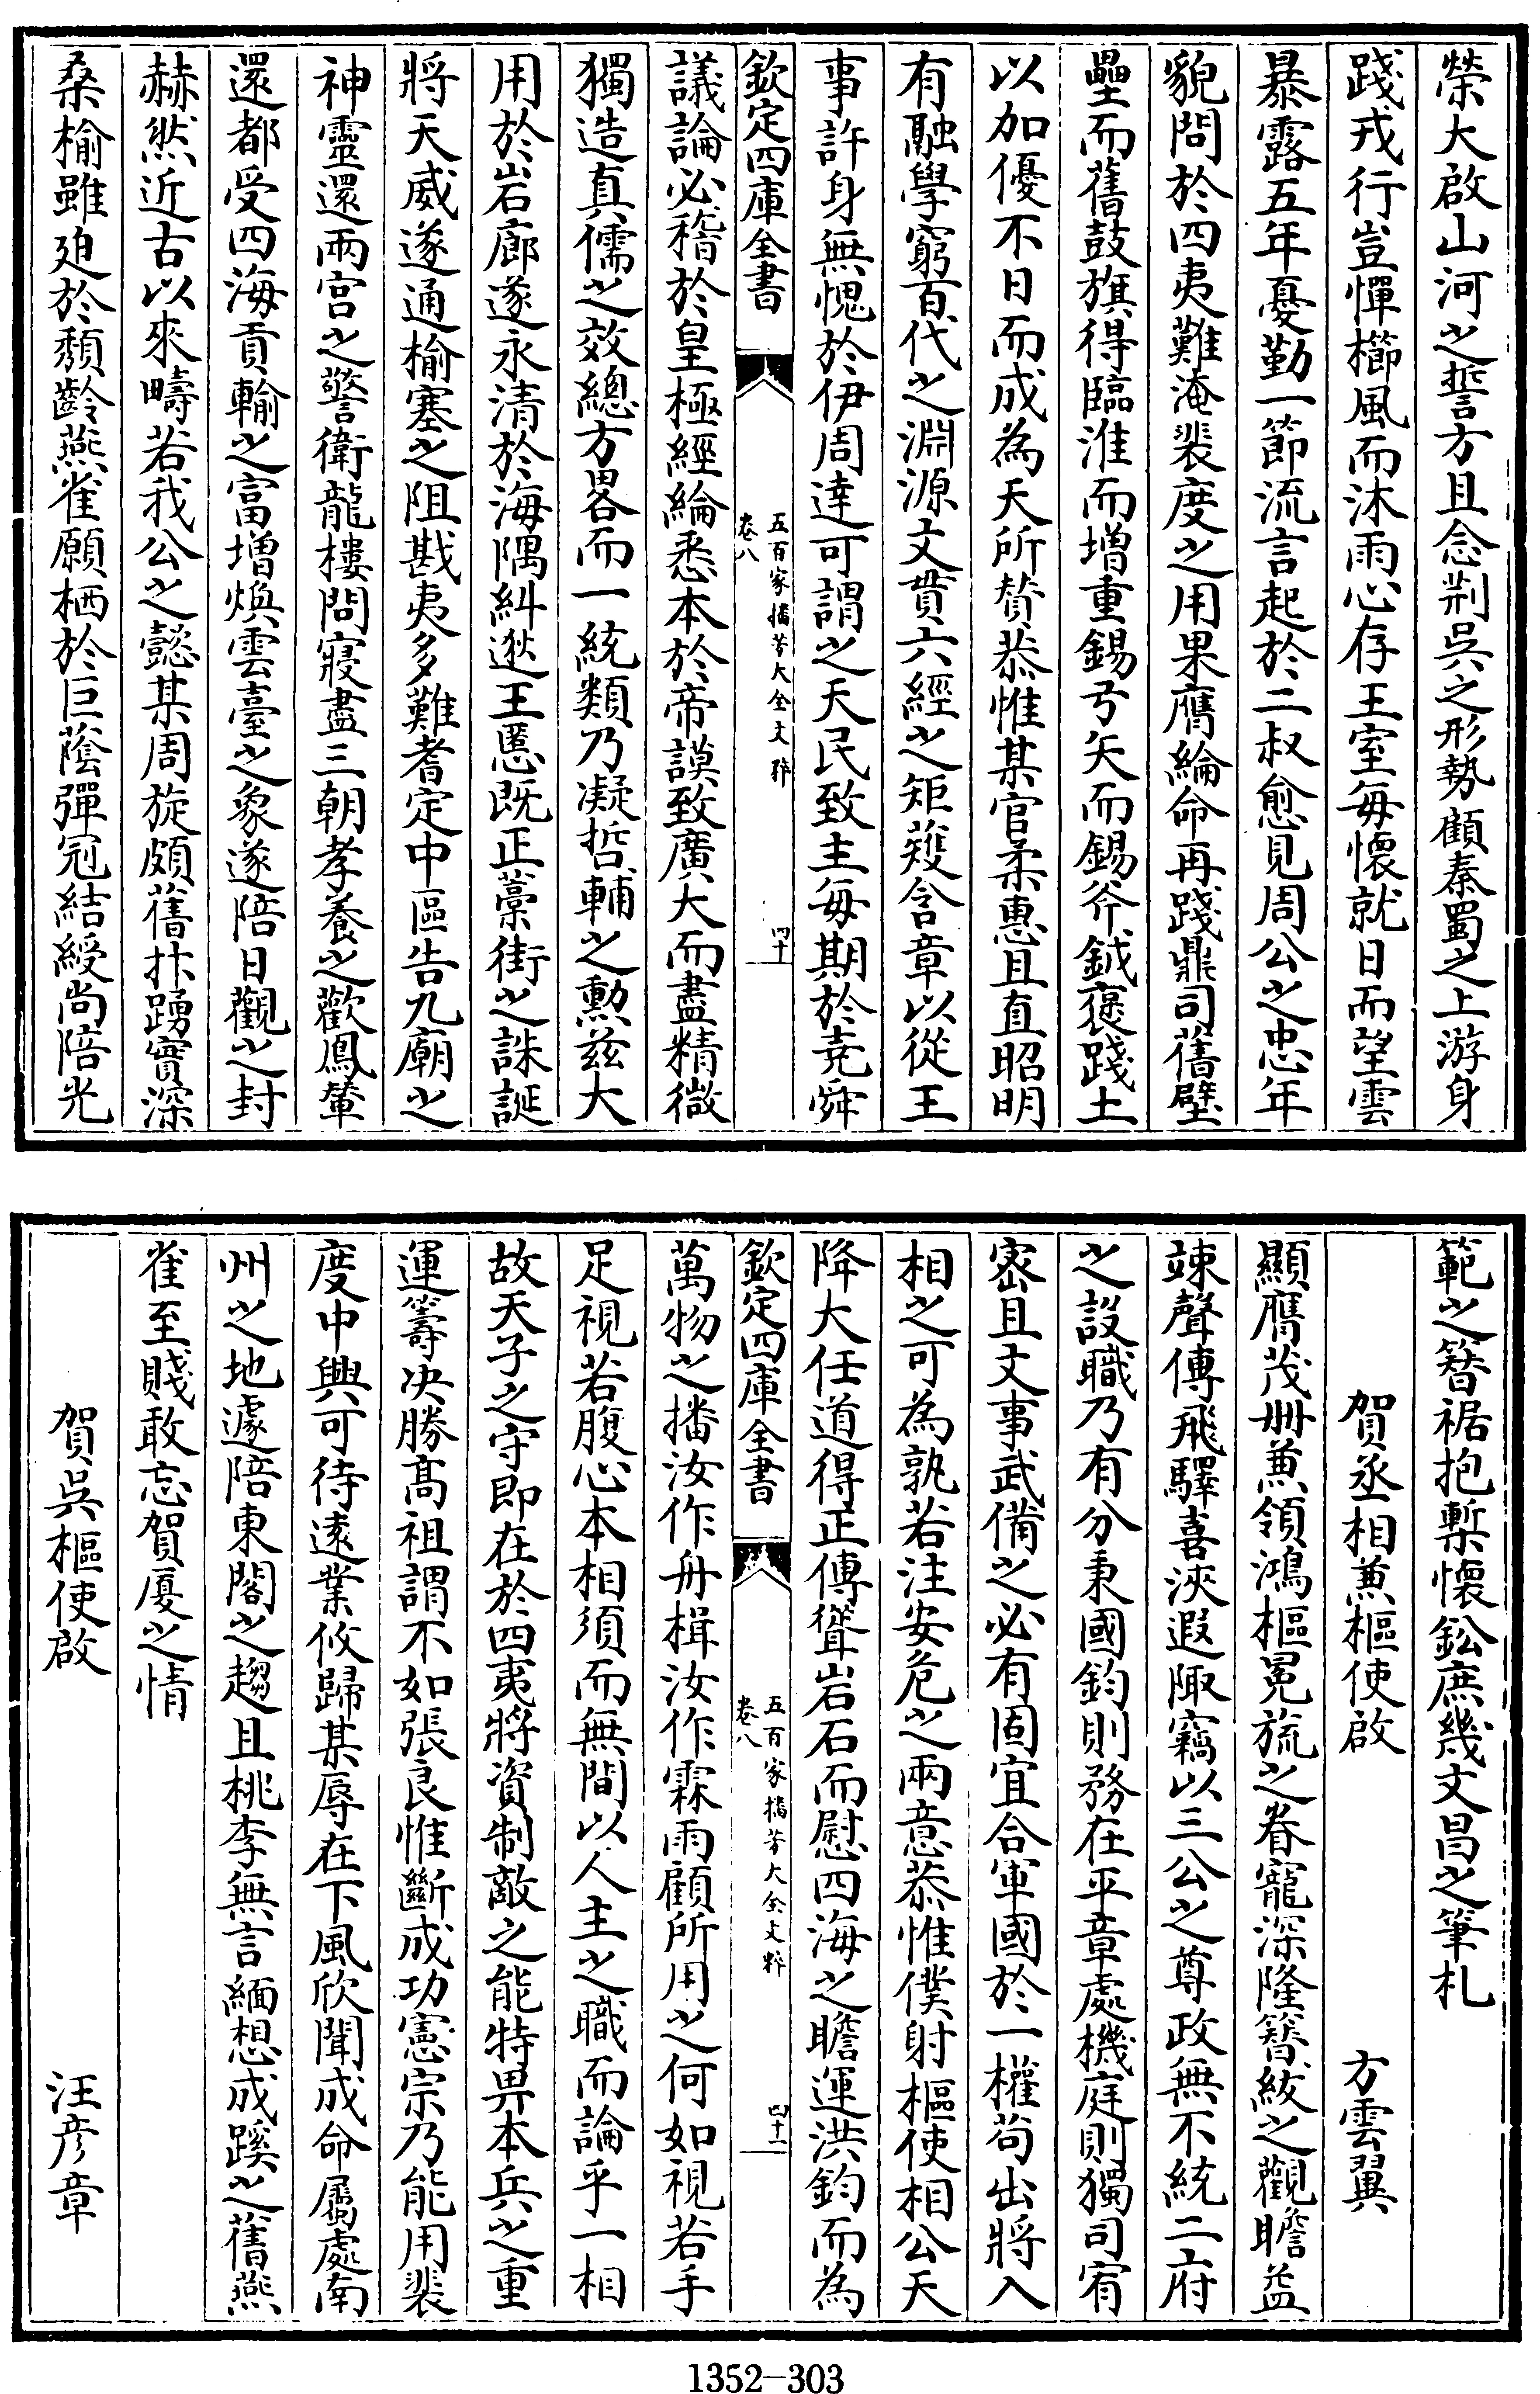 榮大啟山河之誓方且念荆吳之形勢顧秦蜀之上游身
踐戎行豈憚櫛風而沐雨心存王室每懷就日而望雲
暴露五年憂勤一節流言起於二叔愈見周公之忠年
貌問於四夷難淹裴度之用果膺綸命再踐鼎司舊壁
壘而舊鼓旗得臨淮而增重錫弓矢而錫斧鉞褒踐土
以加優不日而成為天所賛恭惟某官柔惠且直昭明
有融學窮百代之淵源文貫六經之矩矱含章以從王
事許身無愧於伊周達可謂之天民致主每期於堯舜
欽定四庫全書
五百家播芳大全文粹
卷八
四十
議論必稽於皇極經綸悉本於帝謨致廣大而盡精微
獨造真儒之效總方畧而一統類乃凝哲輔之勲兹大
用於岩廊遂永清於海隅糾逖王慝既正藁街之誅誕
將天威遂通榆塞之阻戡夷多難耆定中區告九廟之
神靈還兩宮之警衛龍樓問寢盡三朝孝養之歡鳳輦
還都受四海貢輸之富增煥雲臺之象遂陪日觀之封
赫然近古以來疇若我公之懿某周旋頗舊抃踴實深
桑榆雖廹於頽齡燕雀願栖於巨蔭彈冠結綬尚陪光
範之簪裾抱槧懷鉛庶幾文昌之筆札
賀丞相兼樞使啟
方雲翼
顯膺茂冊兼領鴻樞冕旒之眷寵深隆簪紱之觀瞻益
竦聲傳飛驛喜浹遐陬竊以三公之尊政無不統二府
之設職乃有分秉國鈞則務在平章處機庭則獨司宥
宻且文事武備之必有固宜合軍國於一權苟出將入
相之可為孰若注安危之兩意恭惟僕射樞使相公天
降大任道得正傳聳岩石而慰四海之瞻運洪鈞而為
欽定四庫全書
五百家播芳大全文粹
卷八
四十一
萬物之播汝作舟楫汝作霖雨顧所用之何如視若手
足視若腹心本相須而無間以人主之職而論乎一相
故天子之守即在於四夷將資制敵之能特畀本兵之重
運籌决勝髙祖謂不如張良惟斷成功憲宗乃能用裴
度中興可待逺業攸歸某辱在下風欣聞成命屬處南
州之地遽陪東閣之趨且桃李無言緬想成蹊之舊燕
雀至賤敢忘賀厦之情
賀吳樞使啟
汪彥章
1352-303